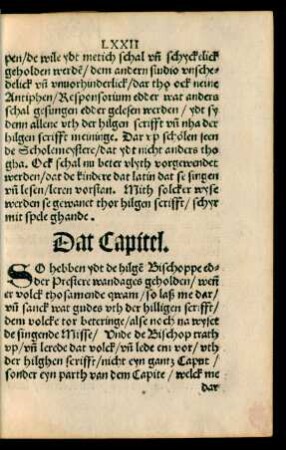 LXXII
pen/de wile ydt metich schal vn̄ schyckelick
geholden werdē/dem andern studio vnsche-
delick vn̄ vnuorhinderlick/dar tho ock neine
Antiphen/Responsorium edder wat anders
schal gesungen edder gelesen werden/ydt sy
denn allene vth der hilgen scrifft vn̄ nha der
hilgen scrifft meininge. Dar vp schölen seen
de Scholemeystere/dat ydt nicht anders tho
gha. Ock schal nu beter vlyth vorgewendet
werden/dat de kindere dat latin dat se singen
vn̄ lesen/leren vorstan. Mith solcker wyse
werden se gewanet thor hilgen scrifft/schyr
mit spele ghande.
Dat Capitel.
SO hebben ydt de hilgē Bischoppe ed-
der Prestere wandages geholden/wen̄
er volck thosamende qwam/so laß me dar/
vn̄ sanck wat gudes vth der hilligen scrifft/
dem volcke tor beteringe/alse noch na wyset
de singende Misse/Vnde de Bischop trath
vp/vn̄ lerede dat volck/vn̄ lede en vor/vth
der hilghen scrifft/nicht eyn gantz Caput/
sonder eyn parth van dem Capite/welck me
dar